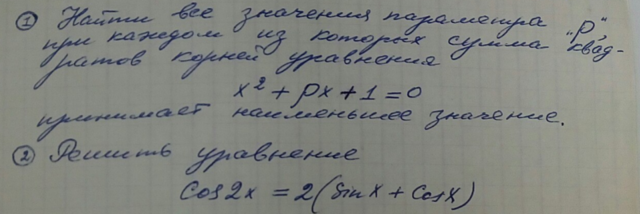 ① Найти все значения параметра „р",
при каждом из которых сумма квад-
ратов корней уравнения
x² + px + 1 = 0
принимает наименьшее значение.
② Решить уравнение
cos2x = 2(sinx + cosx)